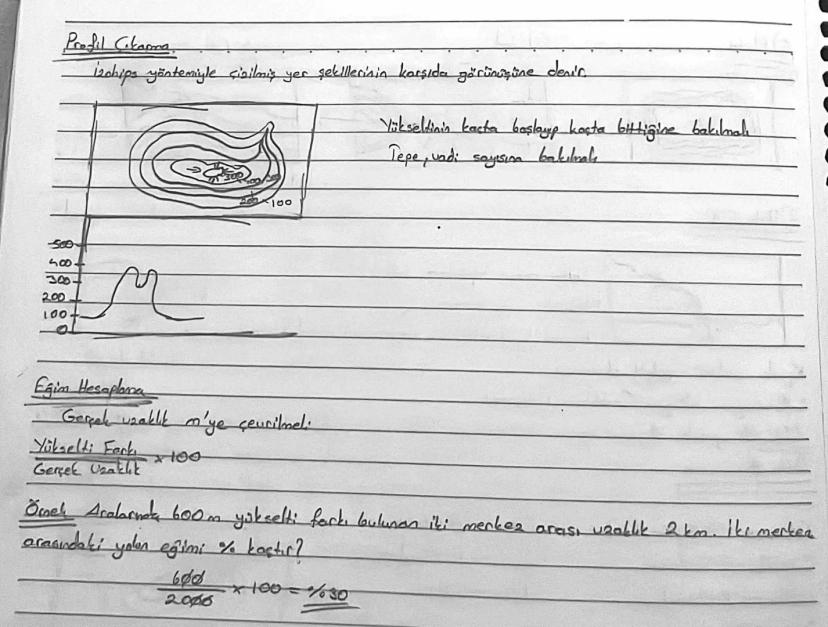 Profil Çıkarma
İzohips yöntemiyle çizilmiş yer şekillerinin karşıda görünüşüne denir.
Yükseltinin kaçta başlayıp kaçta bittiğine bakılmalı
Tepe, vadi sayısına bakılmalı
300
200 100
500
400
300
200
100
0
Eğim Hesaplama
Gerçek uzaklık m'ye çevrilmeli
Yükselti Farkı
Gerçek Uzaklık
x 100
Örnek Aralarında 600 m yükselti farkı bulunan iki merkez arası uzaklık 2 km. İki merkez
arasındaki yolun eğimi % kaçtır?
600
2000
x 100 = %30